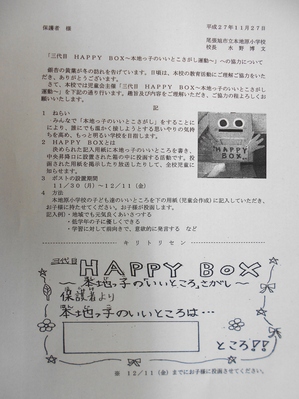 保護者 様
平成27年11月27日
尾張旭市立本地原小学校
校長 水野博文
「三代目 HAPPY BOX～本地っ子のいいとこさがし運動～」への協力について
新春の黄葉が冬の訪れを告げています。日頃は、本校の教育活動にご理解ご協力をいただき、ありがとうございます。
さて、本校では児童会主催「三代目 HAPPY BOX～本地っ子のいいとこさがし運動～」を下記の通り行います。趣旨及び内容をご理解いただき、ご協力の程よろしくお願いいたします。
記
1 ねらい
みんなで「本地っ子のいいとこさがし」をすることにより、誰にでも温かく接しようとする思いやりの気持ちを高め、もっと明るい学校を目指します。
2 HAPPY BOXとは
決められた記入用紙に本地っ子のいいところを書き、中央昇降口に設置された箱の中に投函する活動です。投函された用紙を掲示したり放送したりして、全校児童に知らせます。
3 ポストの設置期間
11/30(月)～12/11(金)
4 方法
本地原小学校の子ども達のいいところを下の用紙(児童会作成)に記入していただき、お子様に持たせてください。お子様が投函します。
記入例)・地域でも元気良くあいさつする
・低学年の子に優しくできる
・学習に対して前向きで、意欲的に発言する など
キリトリセン
三代目
HAPPY BOX
～本地っ子のいいところさがし～
保護者より
本地っ子のいいところは…
ところ!!
※ 12/11(金)までにお子様に投函させてください。